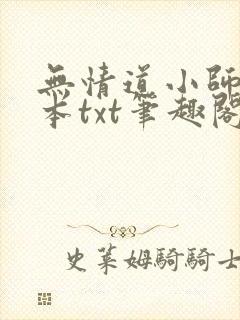 無情道小師
本txt筆趣閣
史萊姆騎騎士